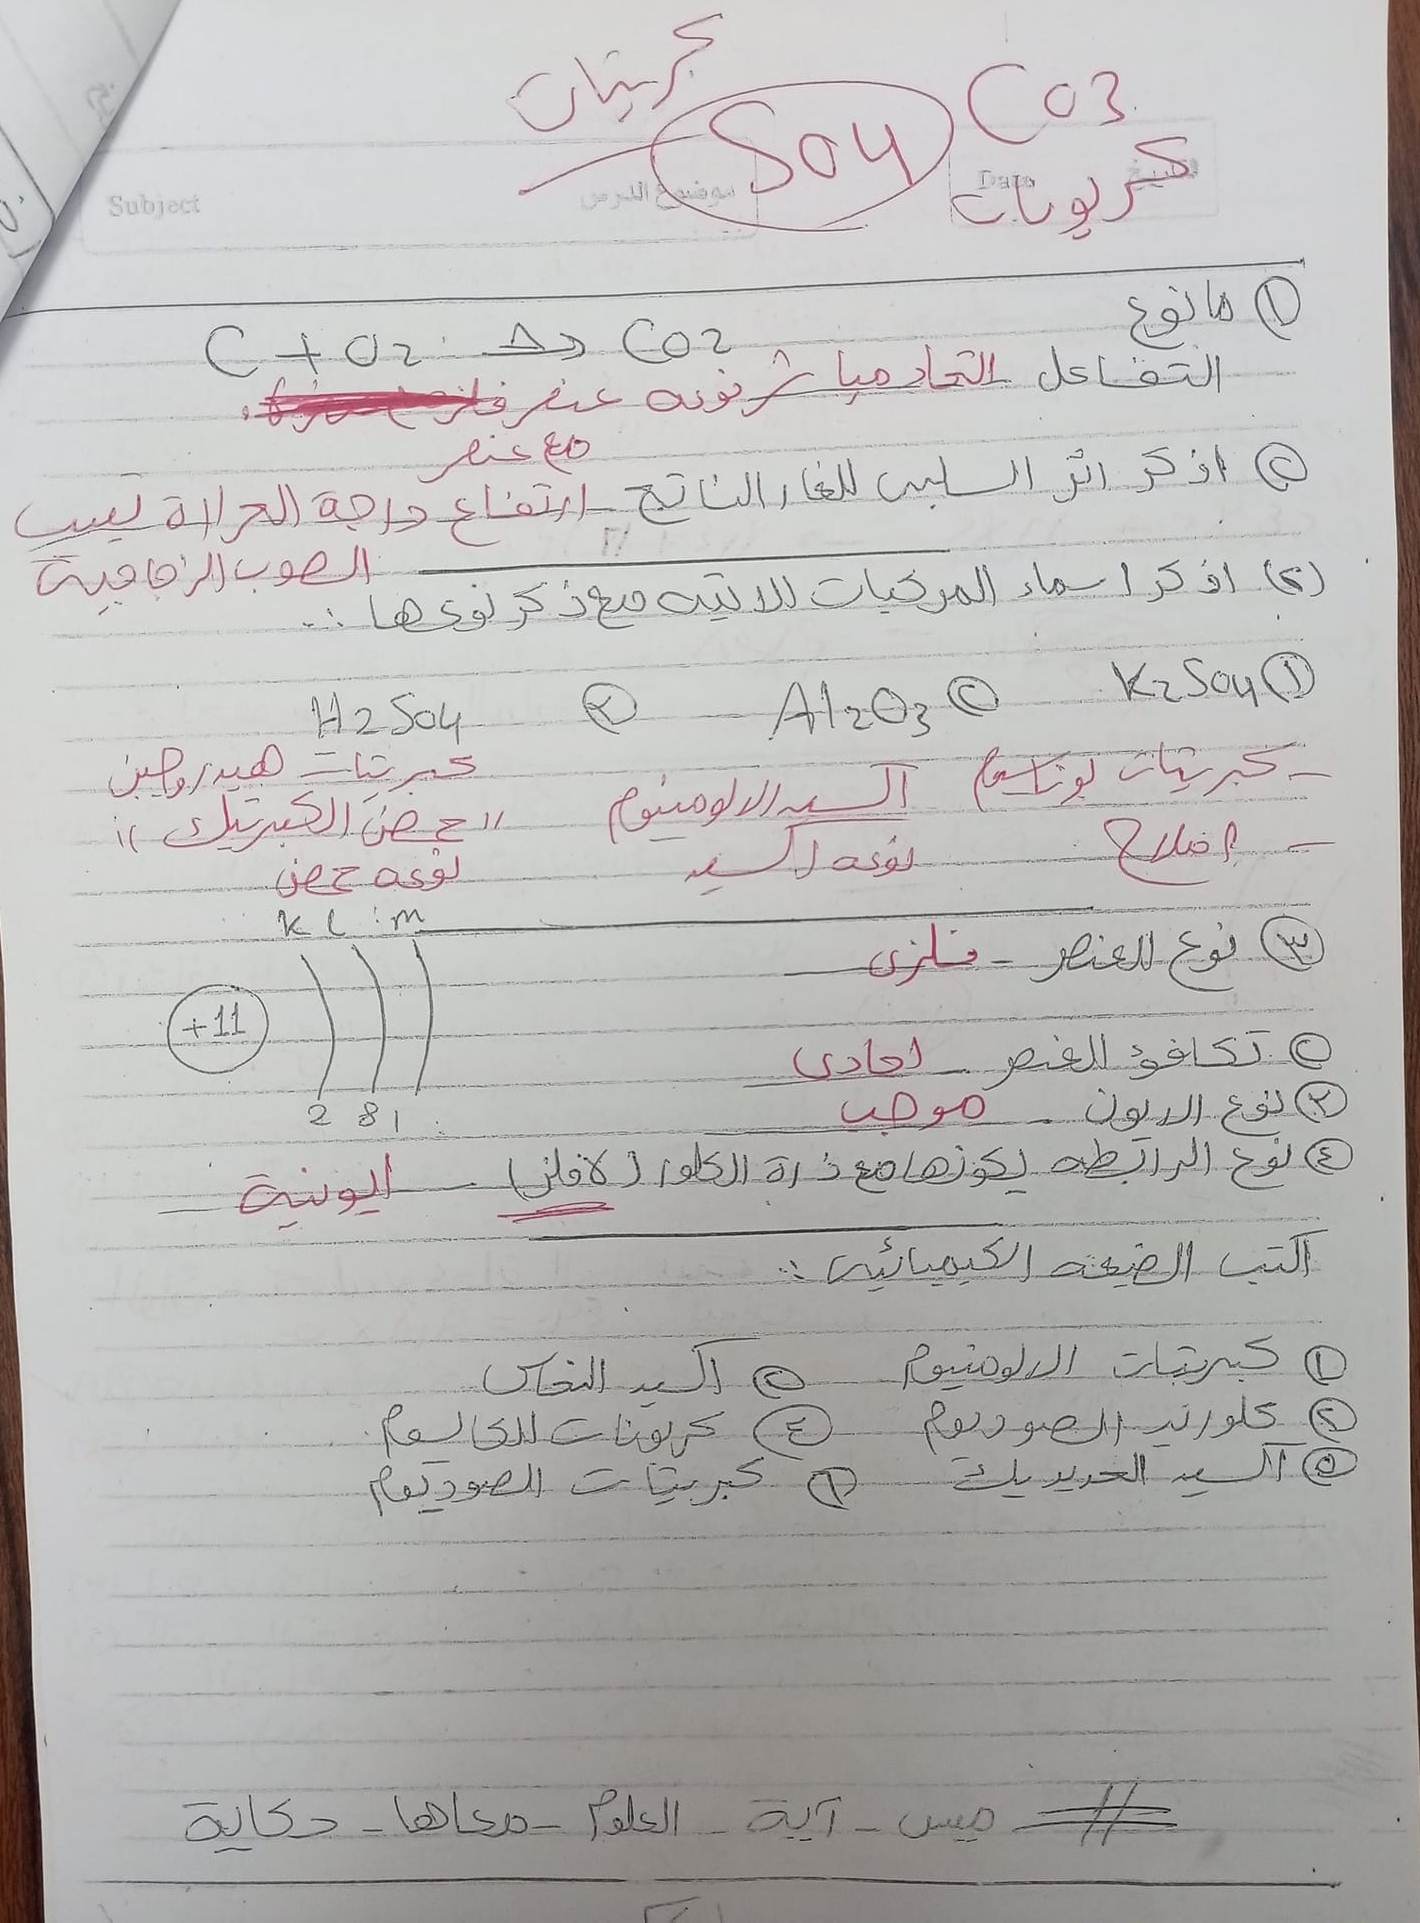 كبريتات
SO4
CO3
كربونات
Subject
موضوع الدرس
Date
التاريخ
① ما نوع
C + O2 Δ→ CO2
التفاعل اتحاد مباشر نوعه عنصر فلز
مع عنصر
② اذكر اثر السلبى للغاز الناتج - ارتفاع درجة الحرارة تسبب
الصوب الزجاجية
(2) اذكر اسماء المركبات الاتيه مع ذكر نوعها :.
① K2SO4 ② Al2O3 ③ H2SO4
- كبريتات بوتاسيوم
- املاح
اكسيد الالومنيوم
نوعه اكسيد
كبريتات هيدروجين
"حمض الكبرتيك"
نوعه حمض
③ نوع العنصر - فلزى
K L M
+11
2 8 1
② تكافؤ العنصر - احادى
③ نوع الايون - موجب
④ نوع الرابطه يكونها مع ذرة الكلور (لافلز) - ايونية
اكتب الصيغه الكيميائيه :.
① كبريتات الالومنيوم ② اكسيد النحاس
③ كلوريد الصوديوم ④ كربونات الكالسيوم
⑤ اكسيد الحديديك ⑥ كبريتات الصوديوم
# ميس - آية - العلوم - معاها - حكاية